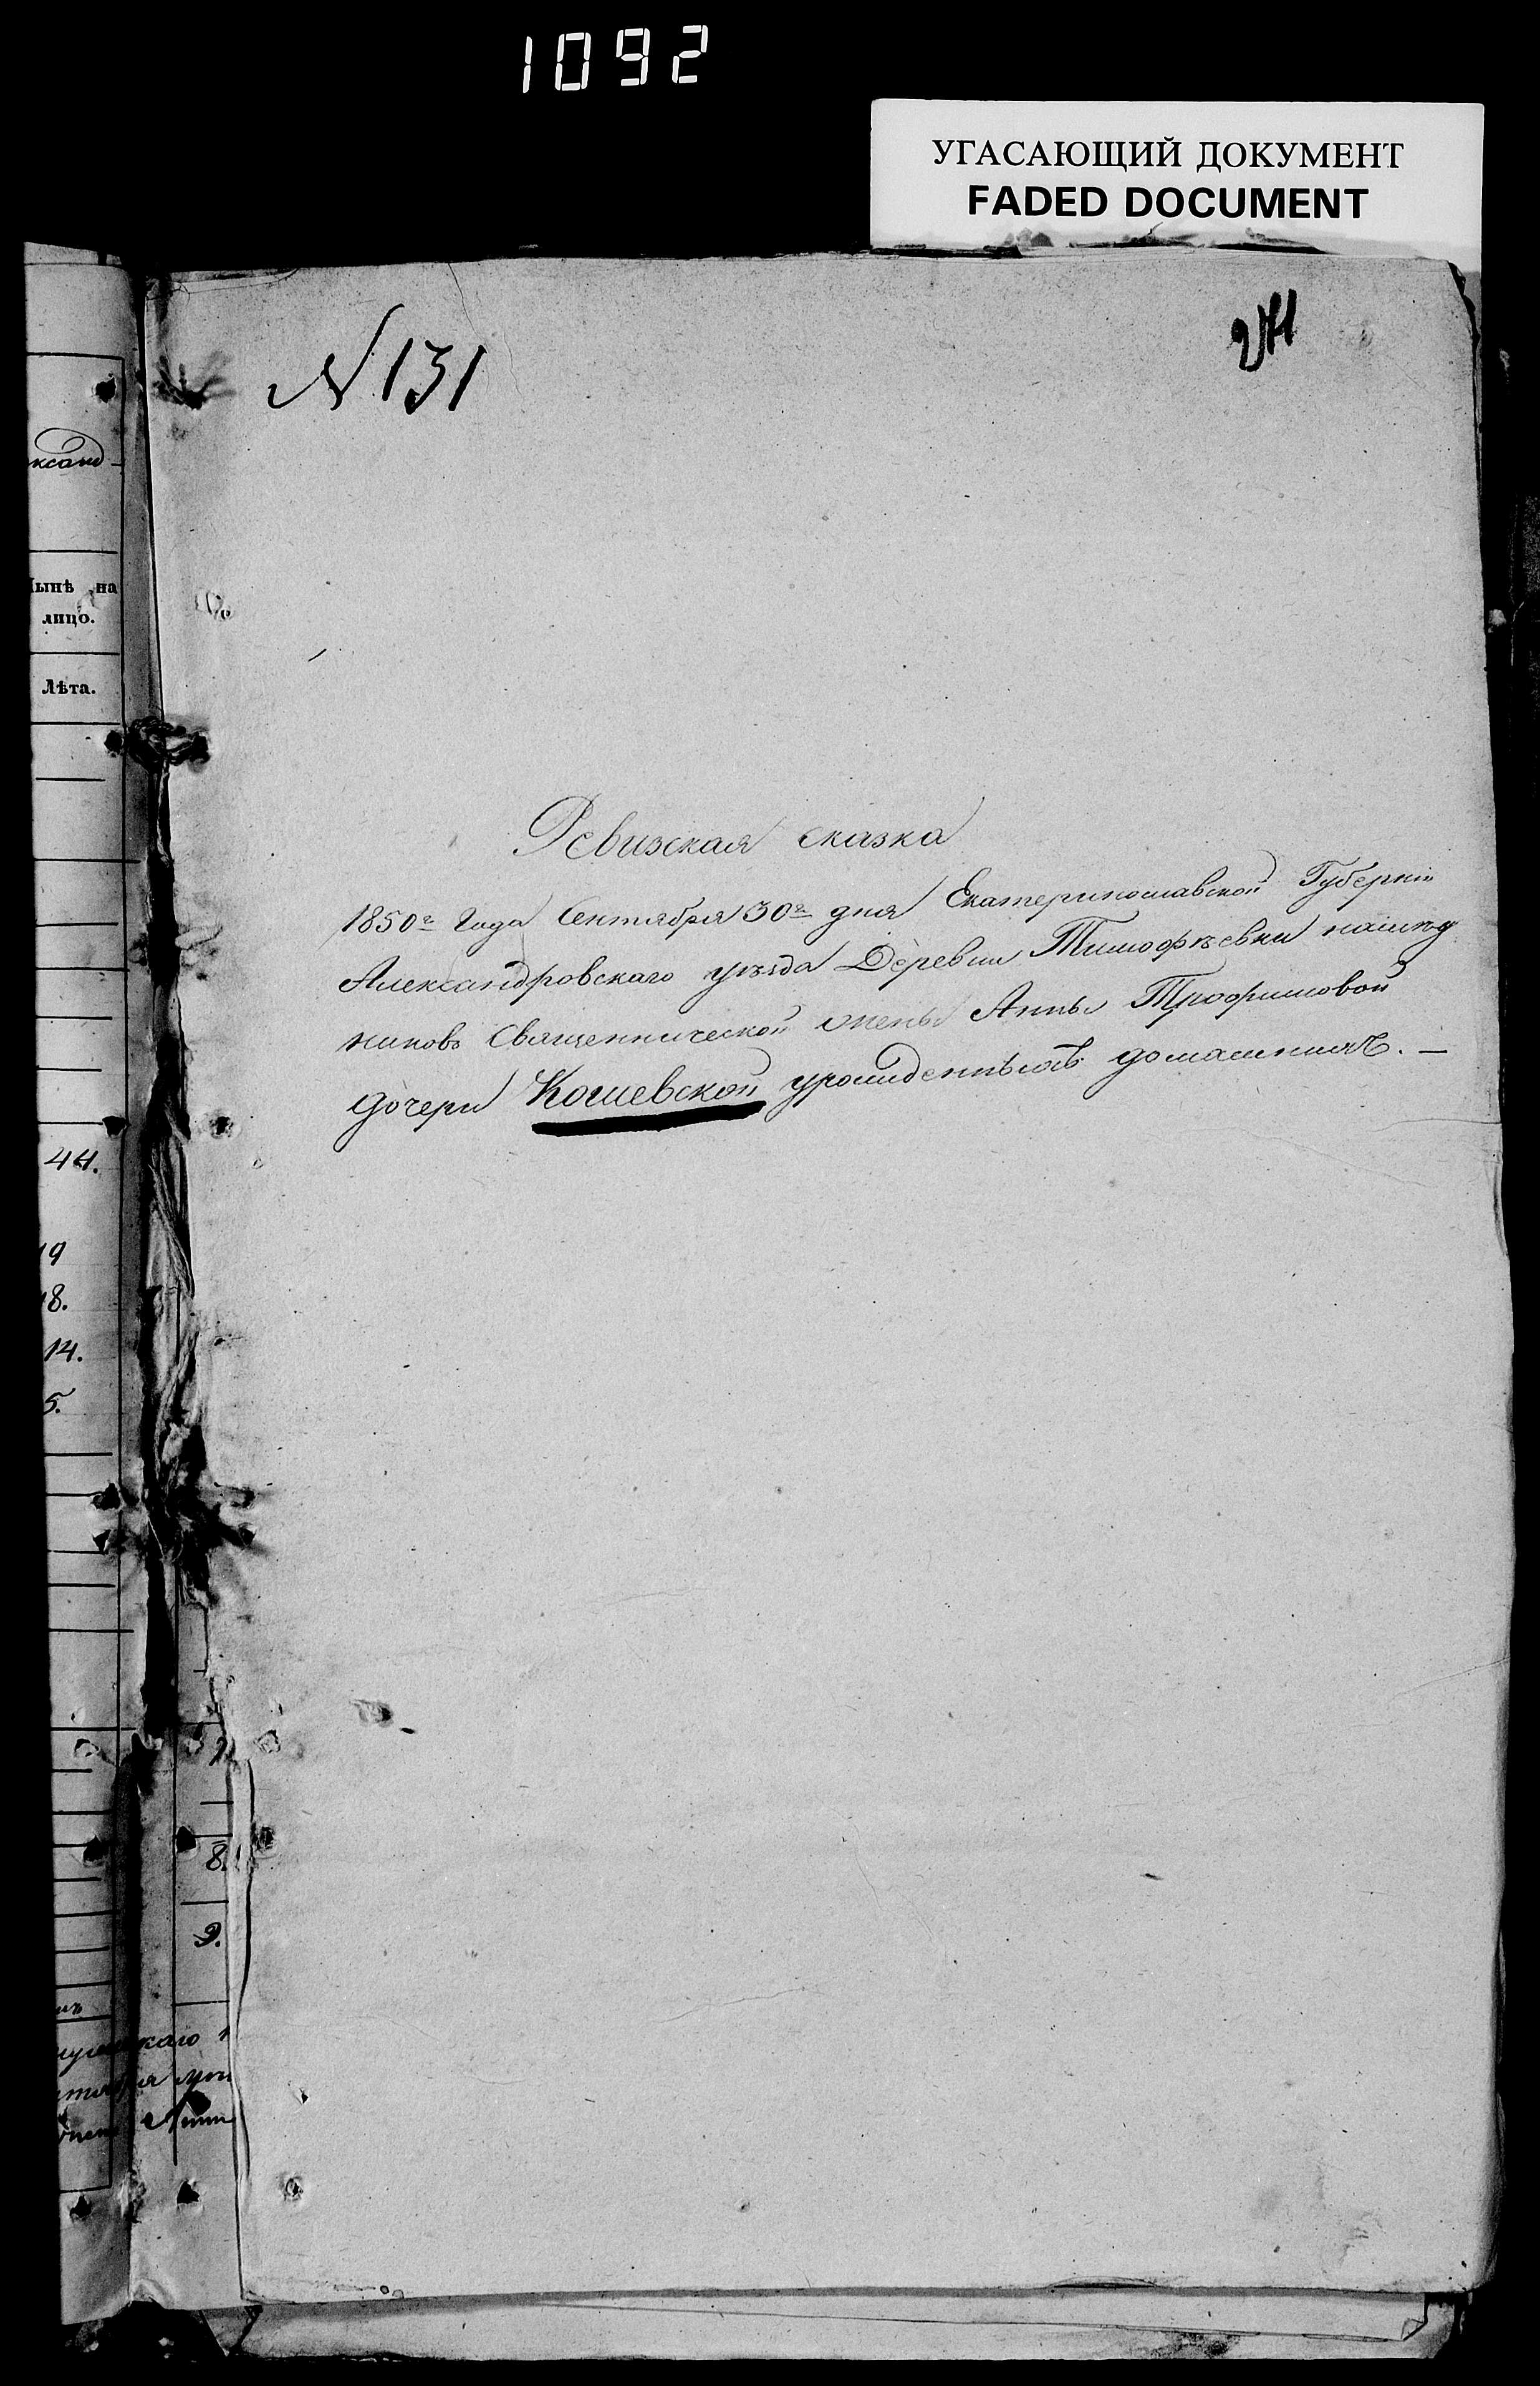 1092
УГАСАЮЩИЙ ДОКУМЕНТ
FADED DOCUMENT
N 131
ксанд-
Нынѣ на
лицо.
Лѣта.
44.
19
18.
14.
5.
Ревизская сказка
1850го Года Сентября 30го дня Екатеринославской Губерніи
Александровскаго уѣзда Деревни Тимофѣевки наслѣд
никовъ Священнической жены Анны Трофимовой
дочери Кошевской урожденныхъ
8.
9.
каго